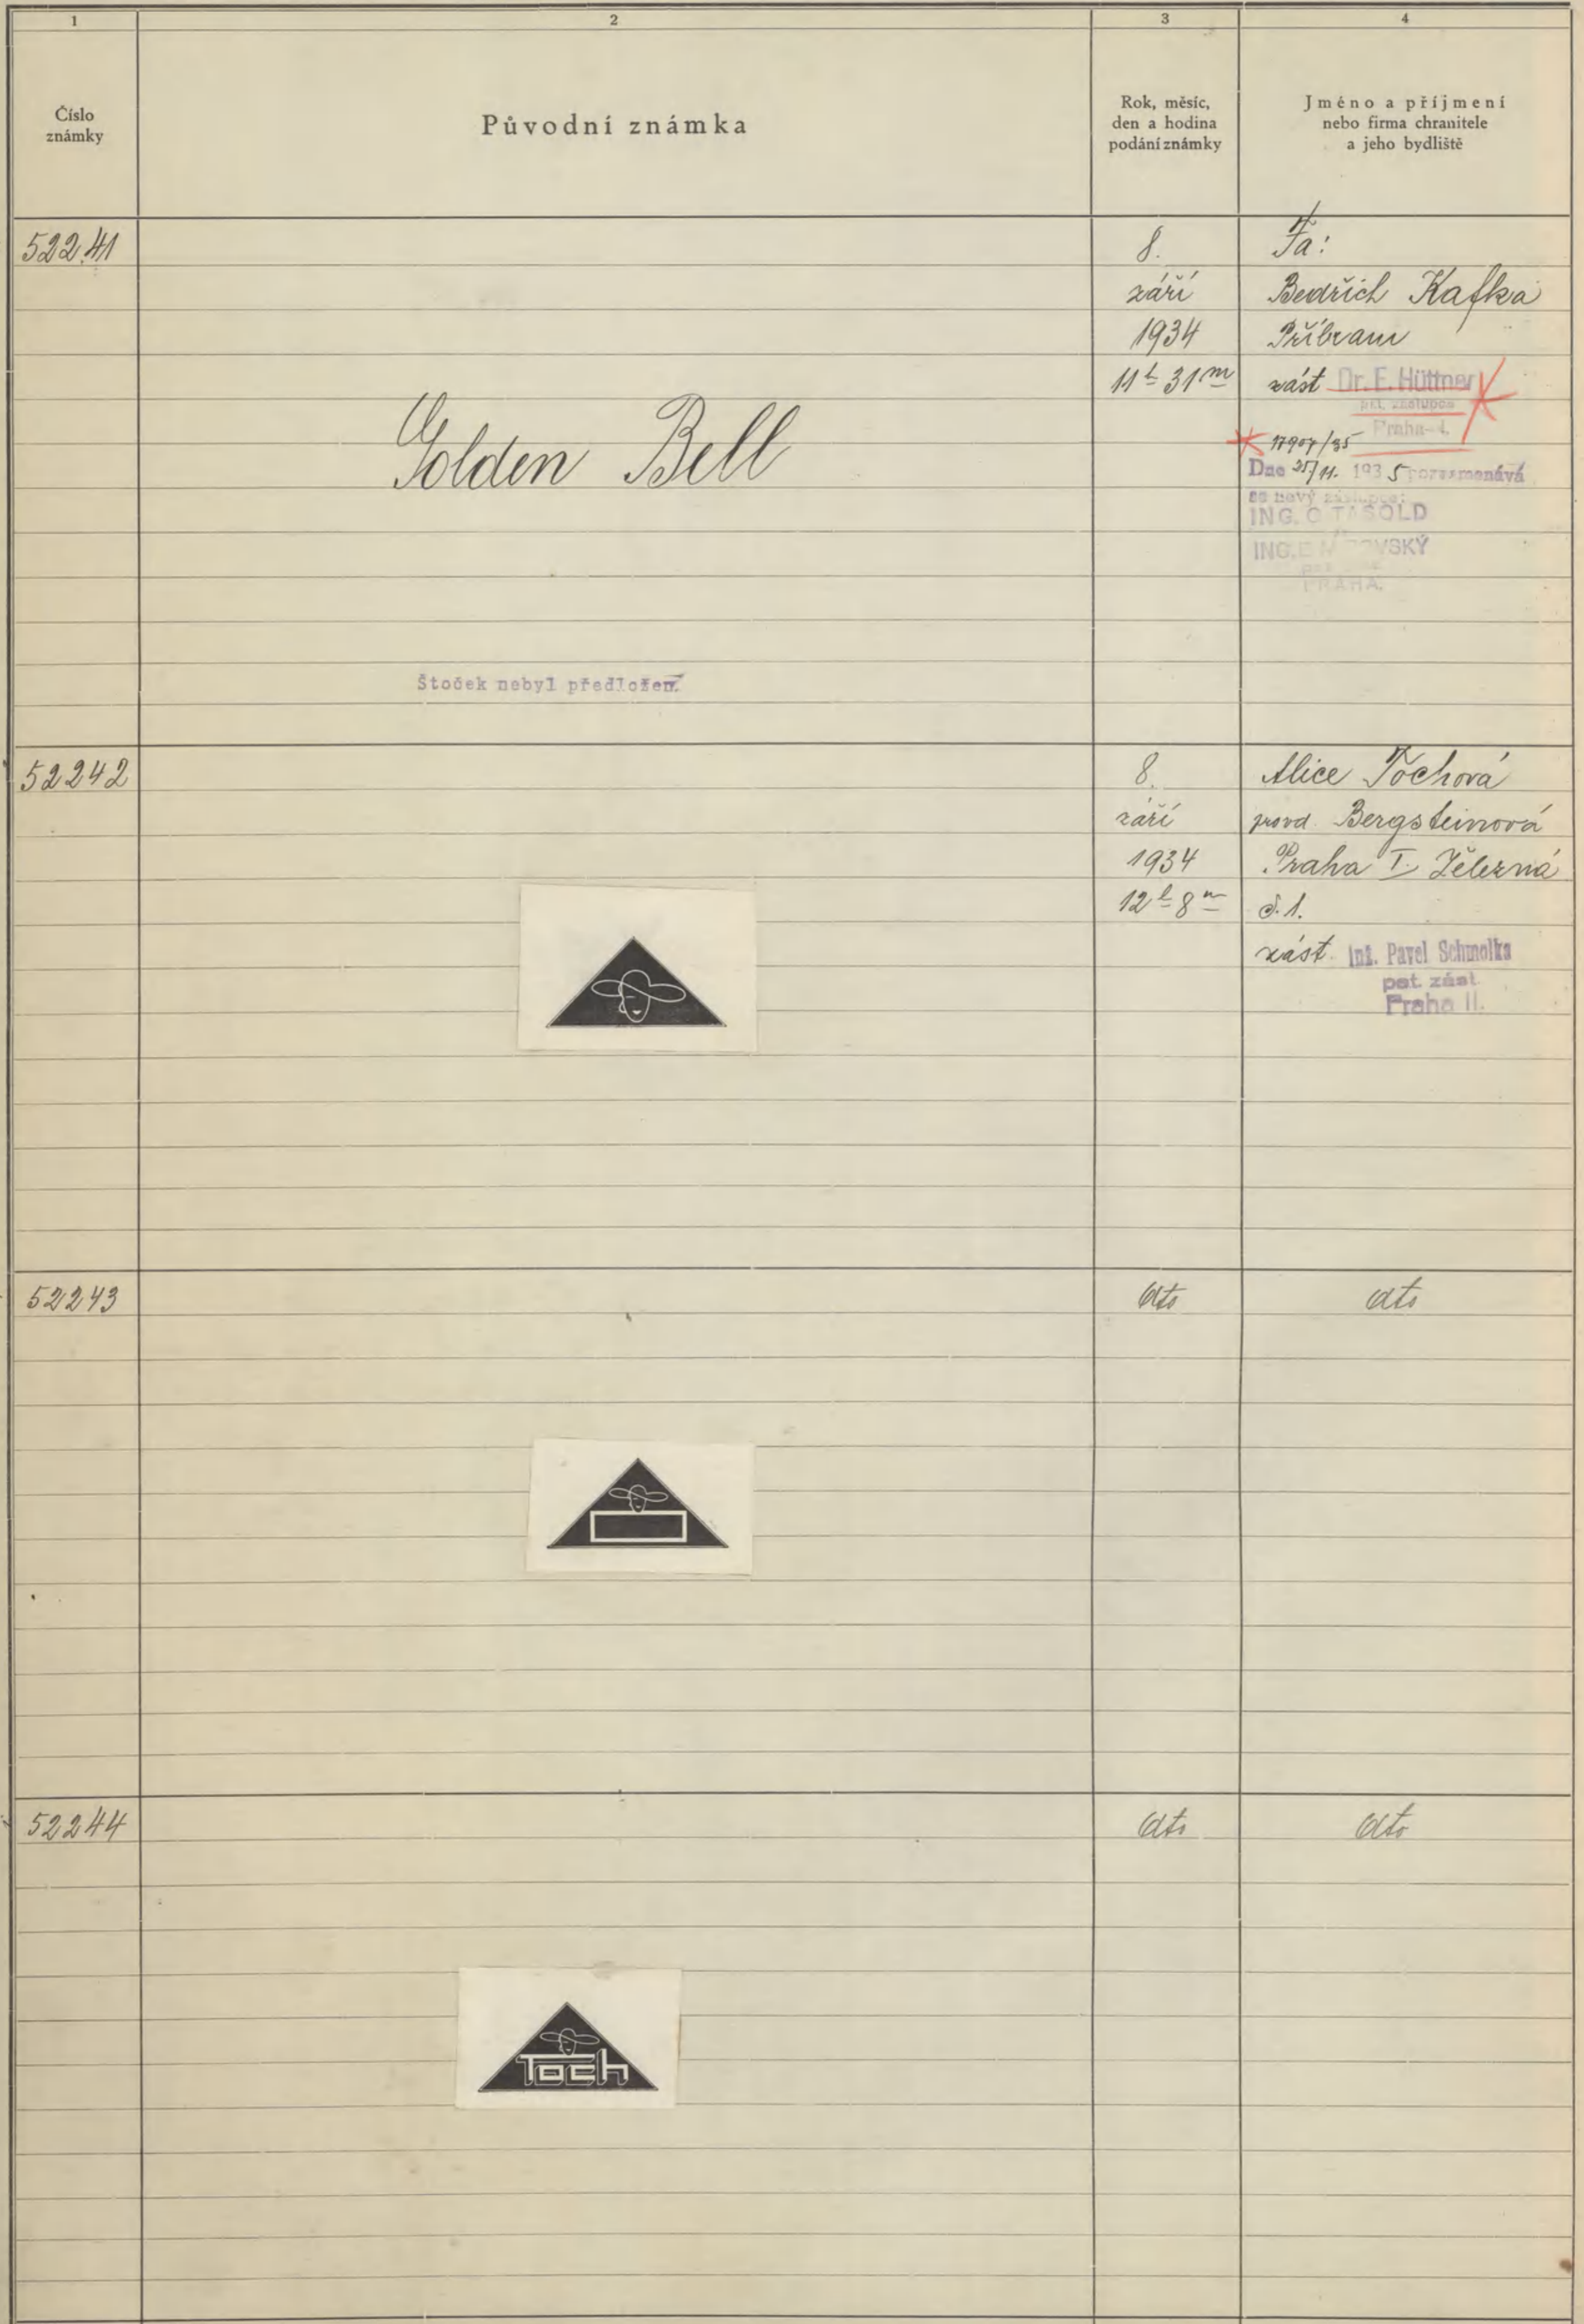 1
2
3
4
Číslo
známky
Původní známka
Rok, měsíc,
den a hodina
podání známky
Jméno a příjmení
nebo firma chranitele
a jeho bydliště
52241
Golden Bell
Štoček nebyl předložen.
8.
září
1934
11 h 31 m
Fa:
Bedřich Kafka
Příbram
zást Dr. E. Hüttner
pat. zástupce
Praha-I.
17907/35
Dne 25/11. 1935 poznamenává
se nový zástupce:
ING. O TASOLD
ING. E
PRAHA.
52242
8.
září
1934
12 h 8 m
Alice Tochová
provd. Bergsteinová
Praha I. Železná
č. 1.
zást. Inž. Pavel Schmolka
pat. zást.
Praha II.
52243
dto
dto
52244
Toch
dto
dto